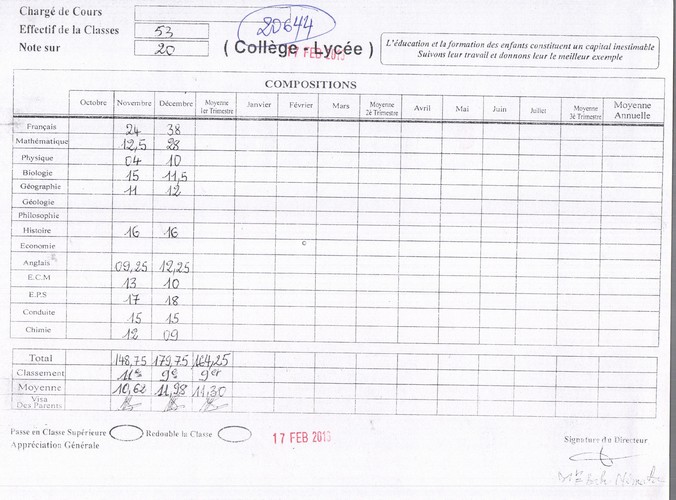 Chargé de Cours
Effectif de la Classes 53
Note sur 20
20644
( Collège - Lycée )
17 FEB 2013
L'éducation et la formation des enfants constituent un capital inestimable
Suivons leur travail et donnons leur le meilleur exemple
COMPOSITIONS
Octobre Novembre Décembre Moyenne 1er Trimestre Janvier Février Mars Moyenne 2è Trimestre Avril Mai Juin Juillet Moyenne 3è Trimestre Moyenne Annuelle
Français 24 38
Mathématique 12,5 28
Physique 04 10
Biologie 15 11,5
Géographie 11 12
Géologie
Philosophie
Histoire 16 16
Economie
Anglais 09,25 12,25
E.C.M 13 10
E.P.S 17 18
Conduite 15 15
Chimie 12 09
Total 148,75 179,75 164,25
Classement 11è 9è 9er
Moyenne 10,62 11,98 11,30
Visa Des Parents
Passe en Classe Supérieure Redouble la Classe
17 FEB 2013
Signature du Directeur
Appréciation Générale